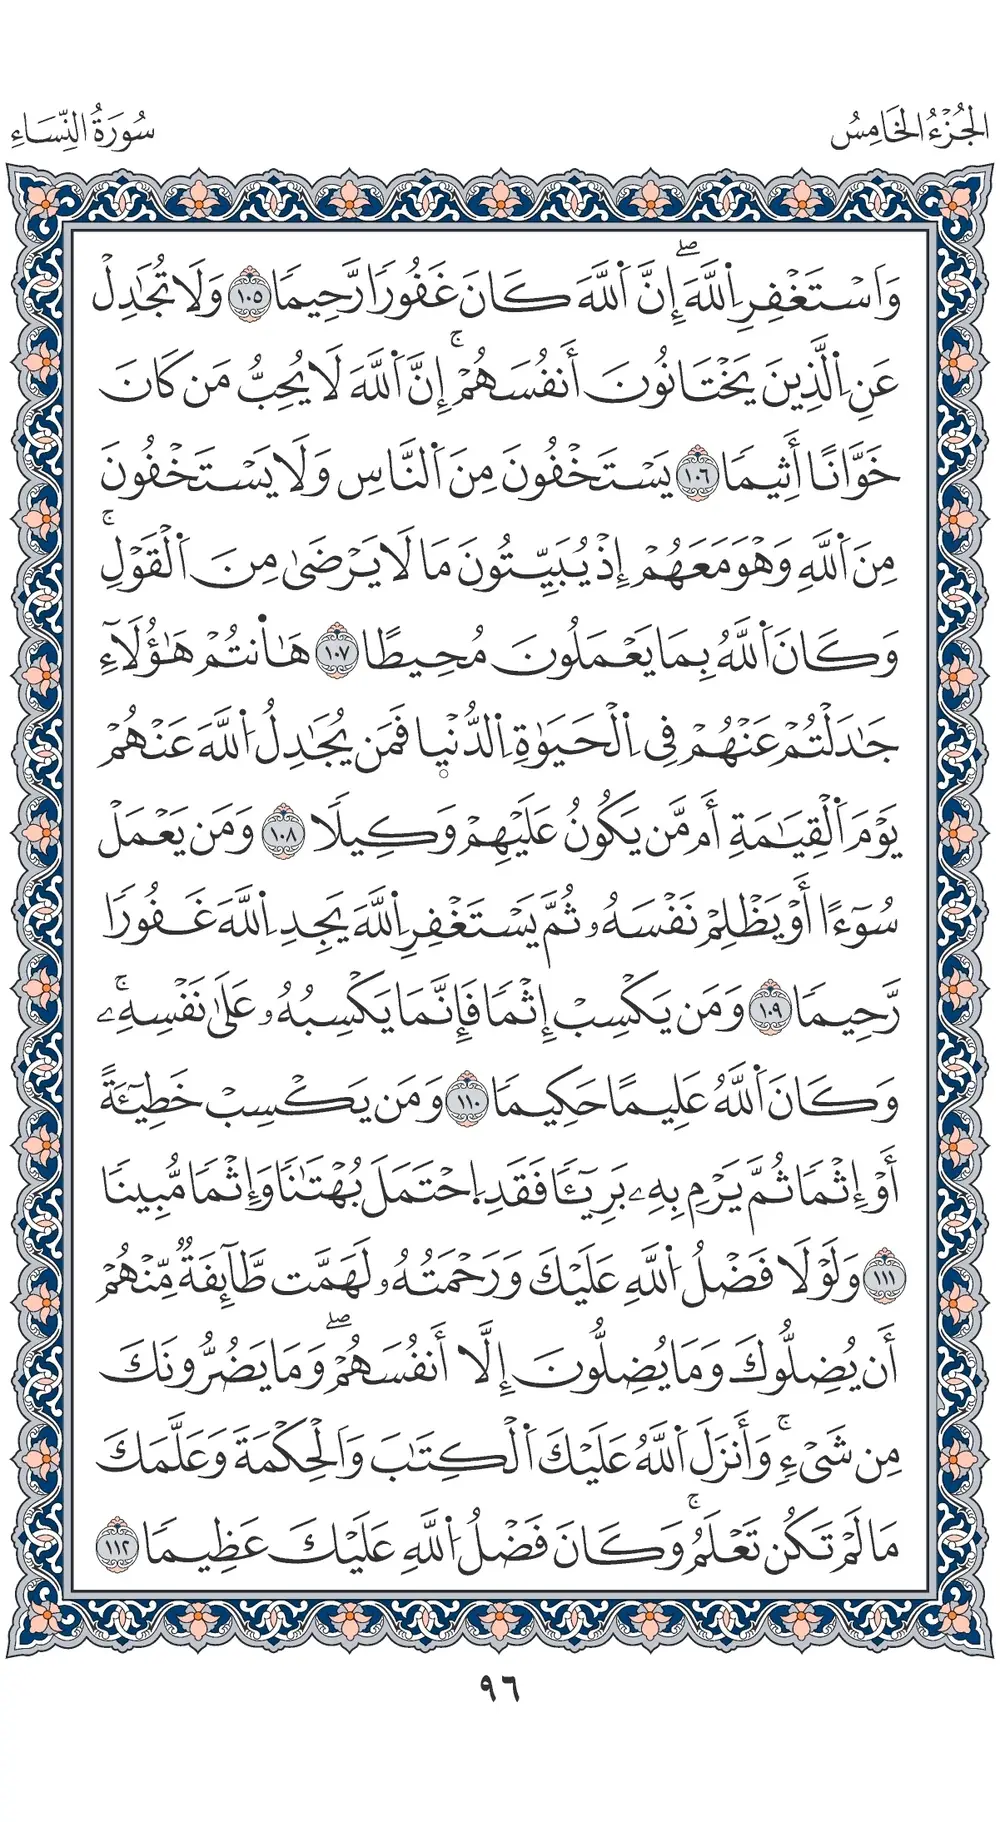 الجُزْءُ الخَامِسُ
سُورَةُ النِّسَاءِ
وَاَسْتَغْفِرِ اِ۬للَّهَۖ إِنَّ اَ۬للَّهَ كَانَ غَفُورٗا رَّحِيمٗا ١٠٥ وَلَا تُجَٰدِلْ
عَنِ اِ۬لَّذِينَ يَخْتَانُونَ أَنفُسَهُمْۚ إِنَّ اَ۬للَّهَ لَا يُحِبُّ مَن كَانَ
خَوَّانًا أَثِيمٗا ١٠٦ يَسْتَخْفُونَ مِنَ اَ۬لنَّاسِ وَلَا يَسْتَخْفُونَ
مِنَ اَ۬للَّهِ وَهْوَ مَعَهُمْ إِذْ يُبَيِّتُونَ مَا لَا يَرْضَىٰ مِنَ اَ۬لْقَوْلِۚ
وَكَانَ اَ۬للَّهُ بِمَا يَعْمَلُونَ مُحِيطًا ١٠٧ هَٰانتُمْ هَٰؤُلَآءِ
جَٰدَلْتُمْ عَنْهُمْ فِى اِ۬لْحَيَوٰةِ اِ۬لدُّنْي۪ا فَمَن يُجَٰدِلُ اُ۬للَّهَ عَنْهُمْ
يَوْمَ اَ۬لْقِيَٰمَةِ أَم مَّن يَكُونُ عَلَيْهِمْ وَكِيلٗا ١٠٨ وَمَن يَعْمَلْ
سُوٓءًا أَوْ يَظْلِمْ نَفْسَهُۥ ثُمَّ يَسْتَغْفِرِ اِ۬للَّهَ يَجِدِ اِ۬للَّهَ غَفُورٗا
رَّحِيمٗا ١٠٩ وَمَن يَكْسِبْ إِثْمٗا فَإِنَّمَا يَكْسِبُهُۥ عَلَىٰ نَفْسِهِۦۚ
وَكَانَ اَ۬للَّهُ عَلِيمًا حَكِيمٗا ١١٠ وَمَن يَكْسِبْ خَطِيٓـَٔةً
أَوْ إِثْمٗا ثُمَّ يَرْمِ بِهِۦ بَرِيٓـٔٗا فَقَدِ اِ۪حْتَمَلَ بُهْتَٰنٗا وَإِثْمٗا مُّبِينٗا
١١١ وَلَوْلَا فَضْلُ اُ۬للَّهِ عَلَيْكَ وَرَحْمَتُهُۥ لَهَمَّت طَّآئِفَةٞ مِّنْهُمْ
أَن يُضِلُّوكَ وَمَا يُضِلُّونَ إِلَّا أَنفُسَهُمْۖ وَمَا يَضُرُّونَكَ
مِن شَىْءٖۚ وَأَنزَلَ اَ۬للَّهُ عَلَيْكَ اَ۬لْكِتَٰبَ وَالْحِكْمَةَ وَعَلَّمَكَ
مَا لَمْ تَكُن تَعْلَمُۚ وَكَانَ فَضْلُ اُ۬للَّهِ عَلَيْكَ عَظِيمٗا ١١٢
٩٦